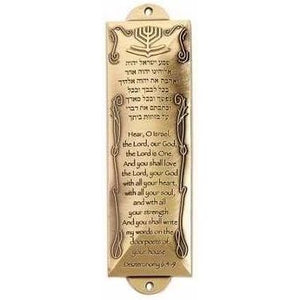 שמע ישראל יהוה
אלהינו יהוה אחד
אהבת את יהוה אלהיך
בכל לבבך ובכל
נפשך ובכל מארך
וכתבתם את דברי
על מזוזות ביתך
Hear, O Israel,
the Lord, our God,
the Lord is One.
And you shall love
the Lord, your God
with all your heart,
with all your soul,
and with all
your strength
And you shall write
my words on the
doorposts of
your house
Deuteronomy 6:4-9